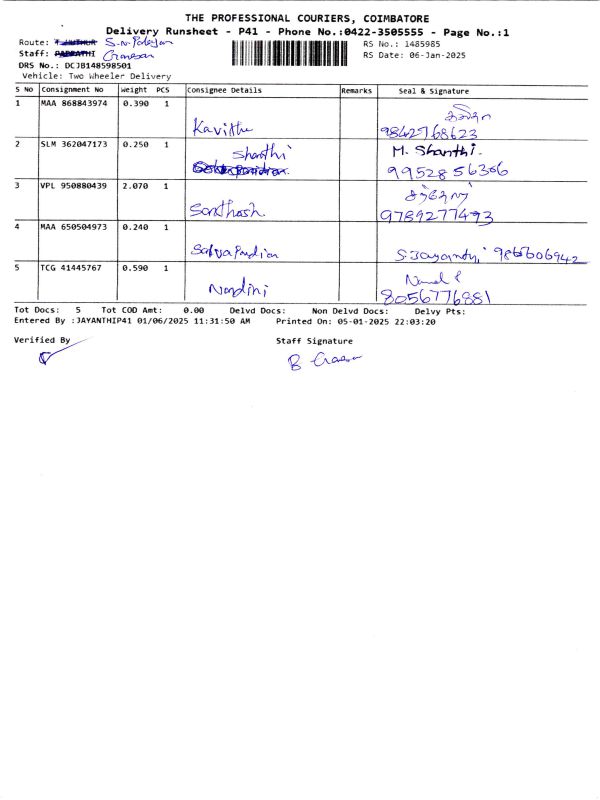 THE PROFESSIONAL COURIERS, COIMBATORE
Delivery Runsheet - P41 - Phone No.:0422-3505555 - Page No.:1
Route: S.N. RS No.: 1485985
Staff: RS Date: 06-Jan-2025
DRS No.: DCJB148598501
Vehicle: Two Wheeler Delivery
S No Consignment No Weight PCS Consignee Details Remarks Seal & Signature
1 MAA 868843974 0.390 1
Kavitha 9842768623
2 SLM 362047173 0.250 1 Shanthi M. Shanthi.
9952856306
3 VPL 950880439 2.070 1
Santhosh 9789277493
4 MAA 650504973 0.240 1
SatvaPandian S. Jayanthi 9866606942
5 TCG 41445767 0.590 1
Nandini 8056776881
Tot Docs: 5 Tot COD Amt: 0.00 Delvd Docs: Non Delvd Docs: Delvy Pts:
Entered By :JAYANTHIP41 01/06/2025 11:31:50 AM Printed On: 05-01-2025 22:03:20
Verified By Staff Signature